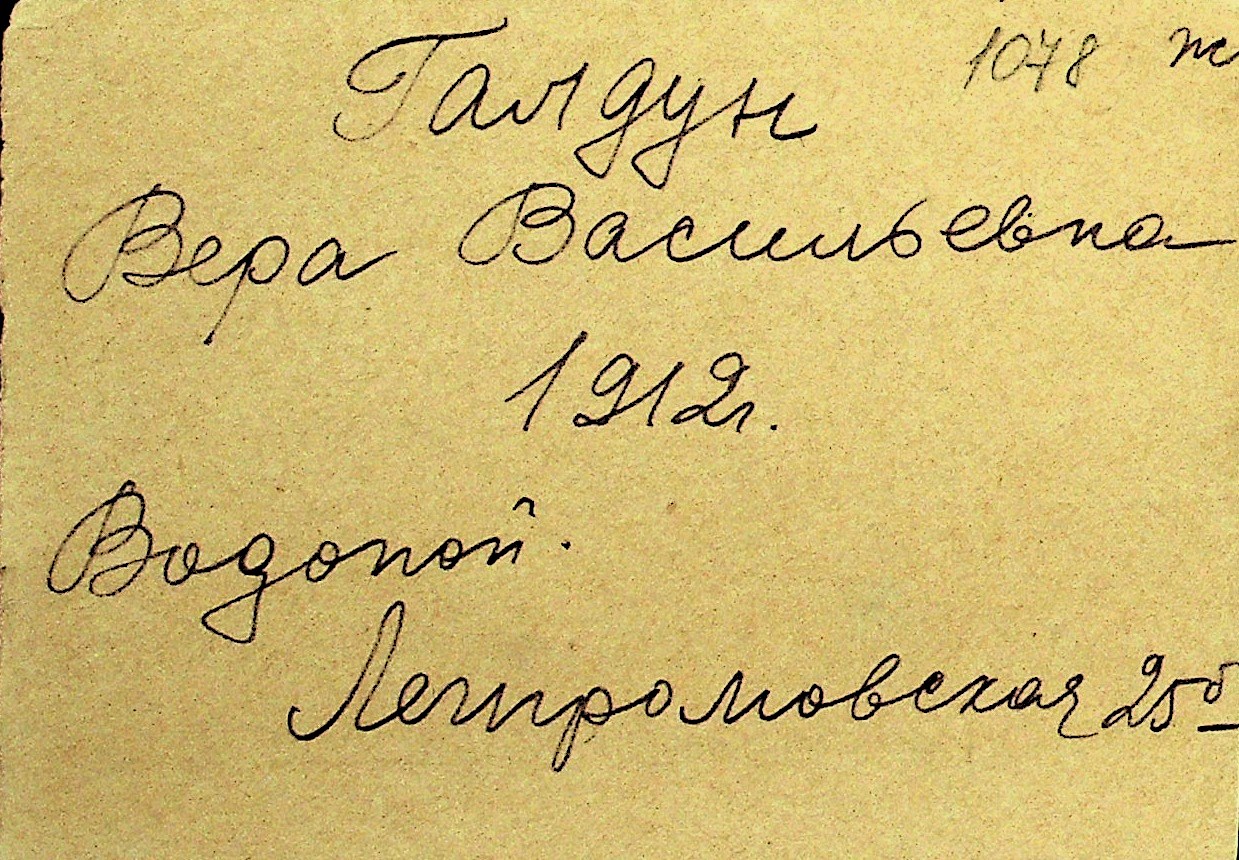 Галдун 1078
Вера Васильевна
1912г.
Водопой.
Легпромовская 25б